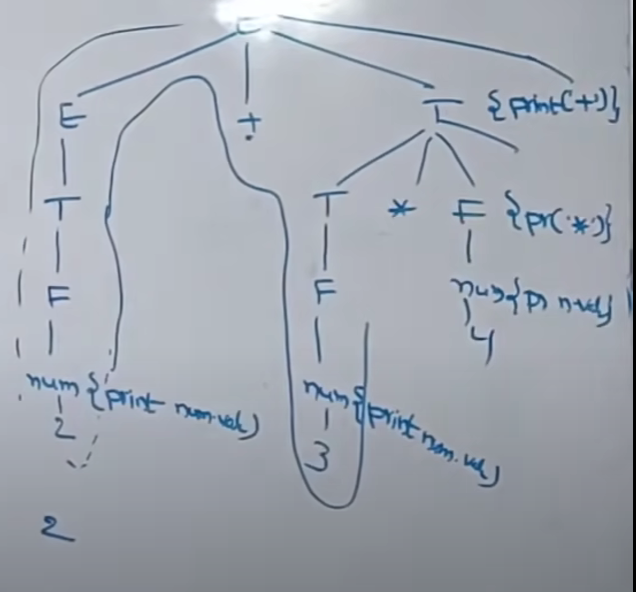 E
E + T {print('+')}
T T * F {pr('*')}
F F num {pr n.val}
num {print num.val) num {print num.val) 4
2 3
2